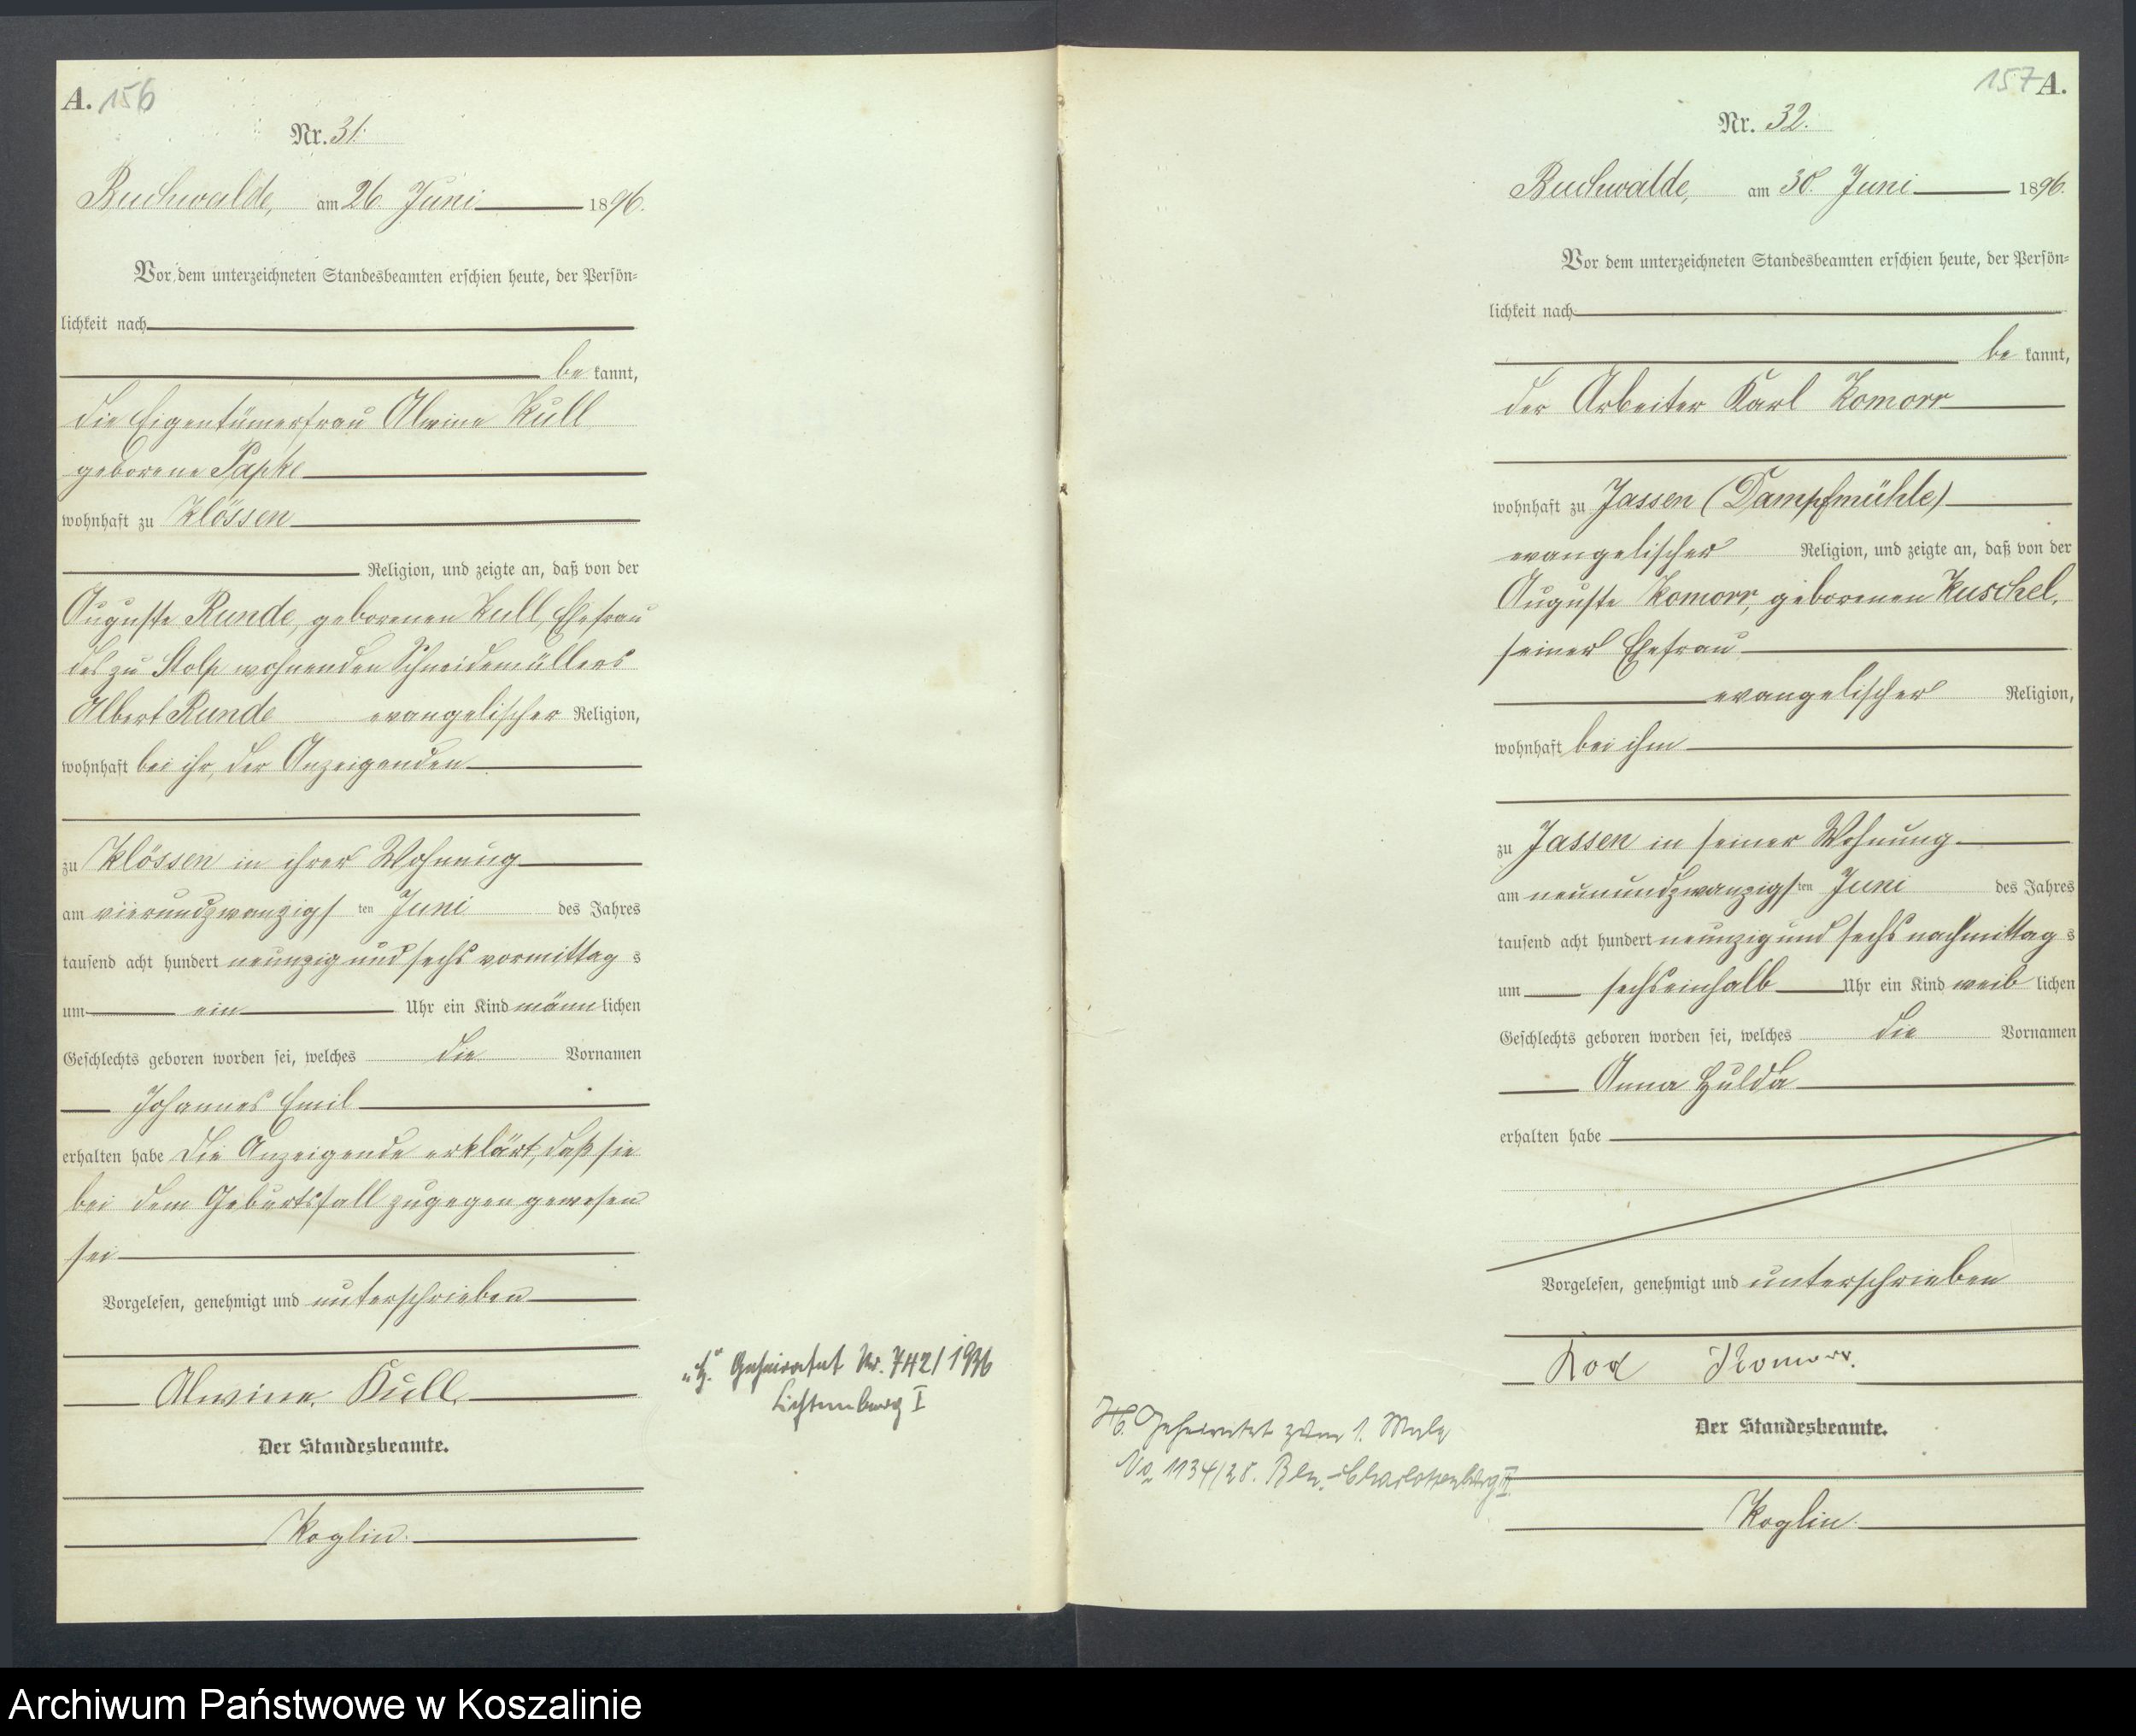 A. 156
Nr. 31.
Buchwalde, am 26. Juni 1896.
Vor dem unterzeichneten Standesbeamten erschien heute, der Persön=
lichkeit nach
be kannt,
die Eigentümerfrau Alwine Kull
geborene Papke
wohnhaft zu Klössen
Religion, und zeigte an, daß von der
Auguste Runde, geborenen Kull, Ehefrau
des zu Stolp wohnenden Schneidemüllers
Albert Runde evangelischer Religion,
wohnhaft bei ihr, der Anzeigenden
zu Klössen in ihrer Wohnung
am vierundzwanzigsten Juni des Jahres
tausend acht hundert neunzig und sechs vormittag s
um ein Uhr ein Kind männ lichen
Geschlechts geboren worden sei, welches die Vornamen
Johannes Emil
erhalten habe Die Anzeigende erklärt, daß sie
bei dem Geburtsfall zugegen gewesen
sei
Vorgelesen, genehmigt und unterschrieben
Alwine Kull
Der Standesbeamte.
Koglin.
„H." Geheiratet Nr. 742/1936
Lichtenberg I
157 A.
Nr. 32.
Buchwalde, am 30. Juni 1896.
Vor dem unterzeichneten Standesbeamten erschien heute, der Persön=
lichkeit nach
be kannt,
der Arbeiter Karl Komorr
wohnhaft zu Jassen (Dampfmühle)
evangelischer Religion, und zeigte an, daß von der
Auguste Komorr, geborenen Kuschel,
seiner Ehefrau
evangelischer Religion,
wohnhaft bei ihm
zu Jassen in seiner Wohnung
am neunundzwanzigsten Juni des Jahres
tausend acht hundert neunzig und sechs nachmittag s
um sechseinhalb Uhr ein Kind weib lichen
Geschlechts geboren worden sei, welches die Vornamen
Anna Hulda
erhalten habe
Vorgelesen, genehmigt und unterschrieben
Komorr.
Der Standesbeamte.
Koglin.
H. Geheiratet zum 1. Male
No 1134/28. Bln.-Charlottenburg III.
Archiwum Państwowe w Koszalinie